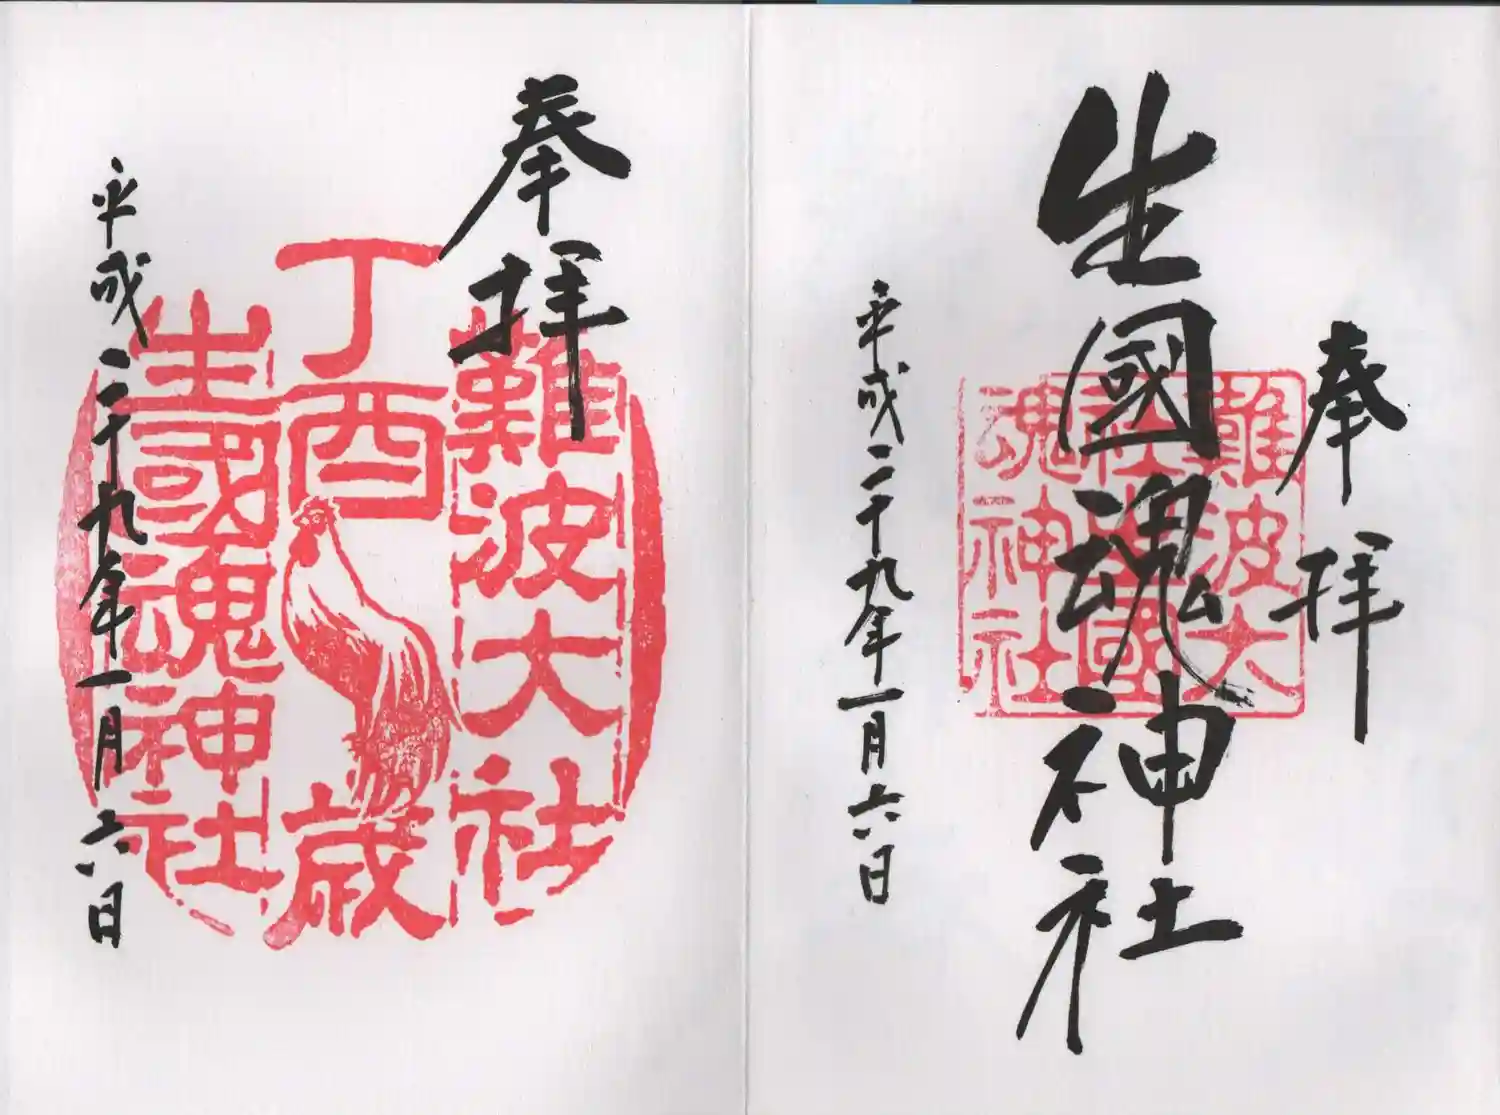 奉拝
生國魂神社
平成二十九年一月六日
難波大社
生國魂神社
奉拝
難波大社
丁酉歳
生國魂神社
平成二十九年一月六日